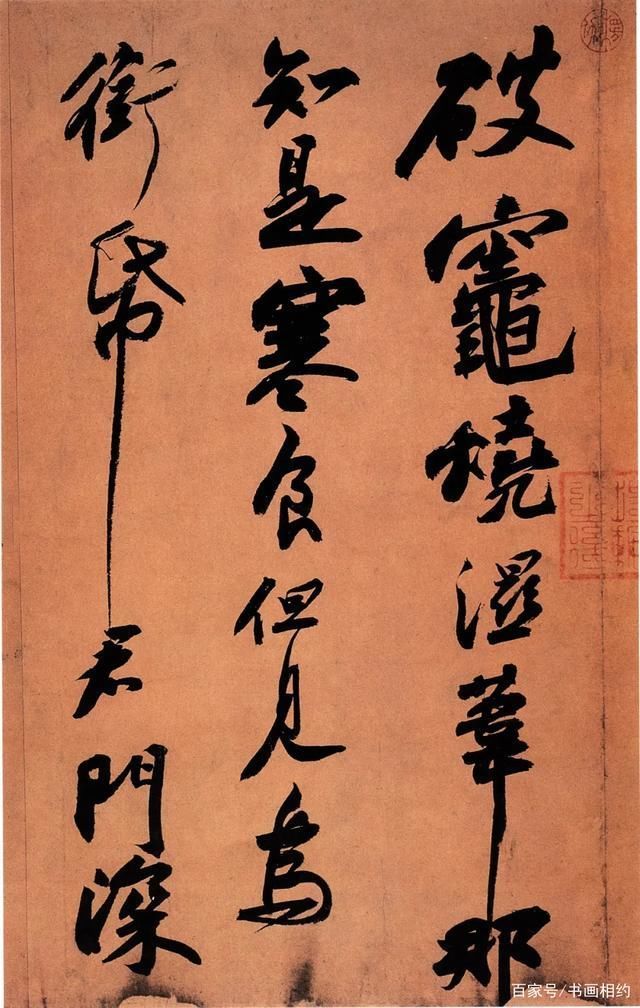 破竈燒溼葦那
知是寒食但見烏
銜帋君門深
百家号/书画相约